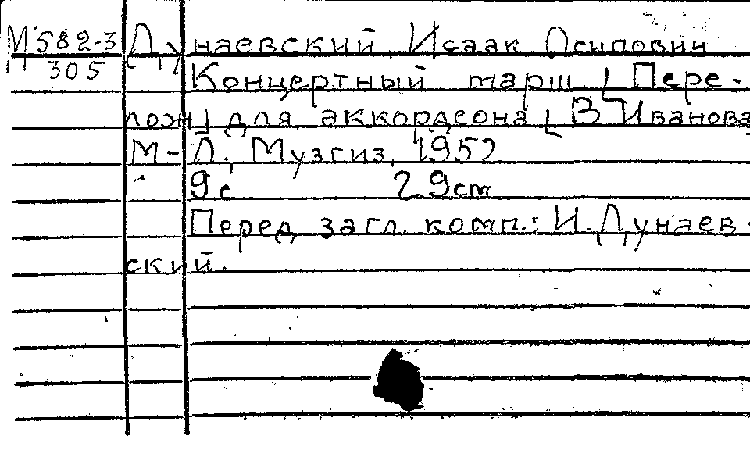 М 582-3 Дунаевский Исаак Осипович
305
Концертный марш [Пере-
лож] для аккордеона [В Иванова
М-Л, Музгиз, 1952
9с 29см
Перед загл. комп.: И. Дунаев-
ский.